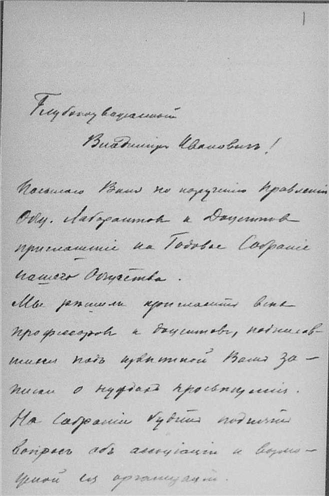 1
Глубокоуважаемый
Владимиръ Ивановичъ!
Посылаю Вамъ по порученію Правленія
Общ. Лаборантов и Доцентов
приглашеніе на Годовое Собраніе
нашего Общества.
Мы решили пригласить всех
профессоров и доцентов, подписав-
шихся подъ Вами за-
писки о нуждах просвещенія.
На Собраніи будетъ поднятъ
вопросъ объ ассоціаціи и возмож-
ной ея организаціи.